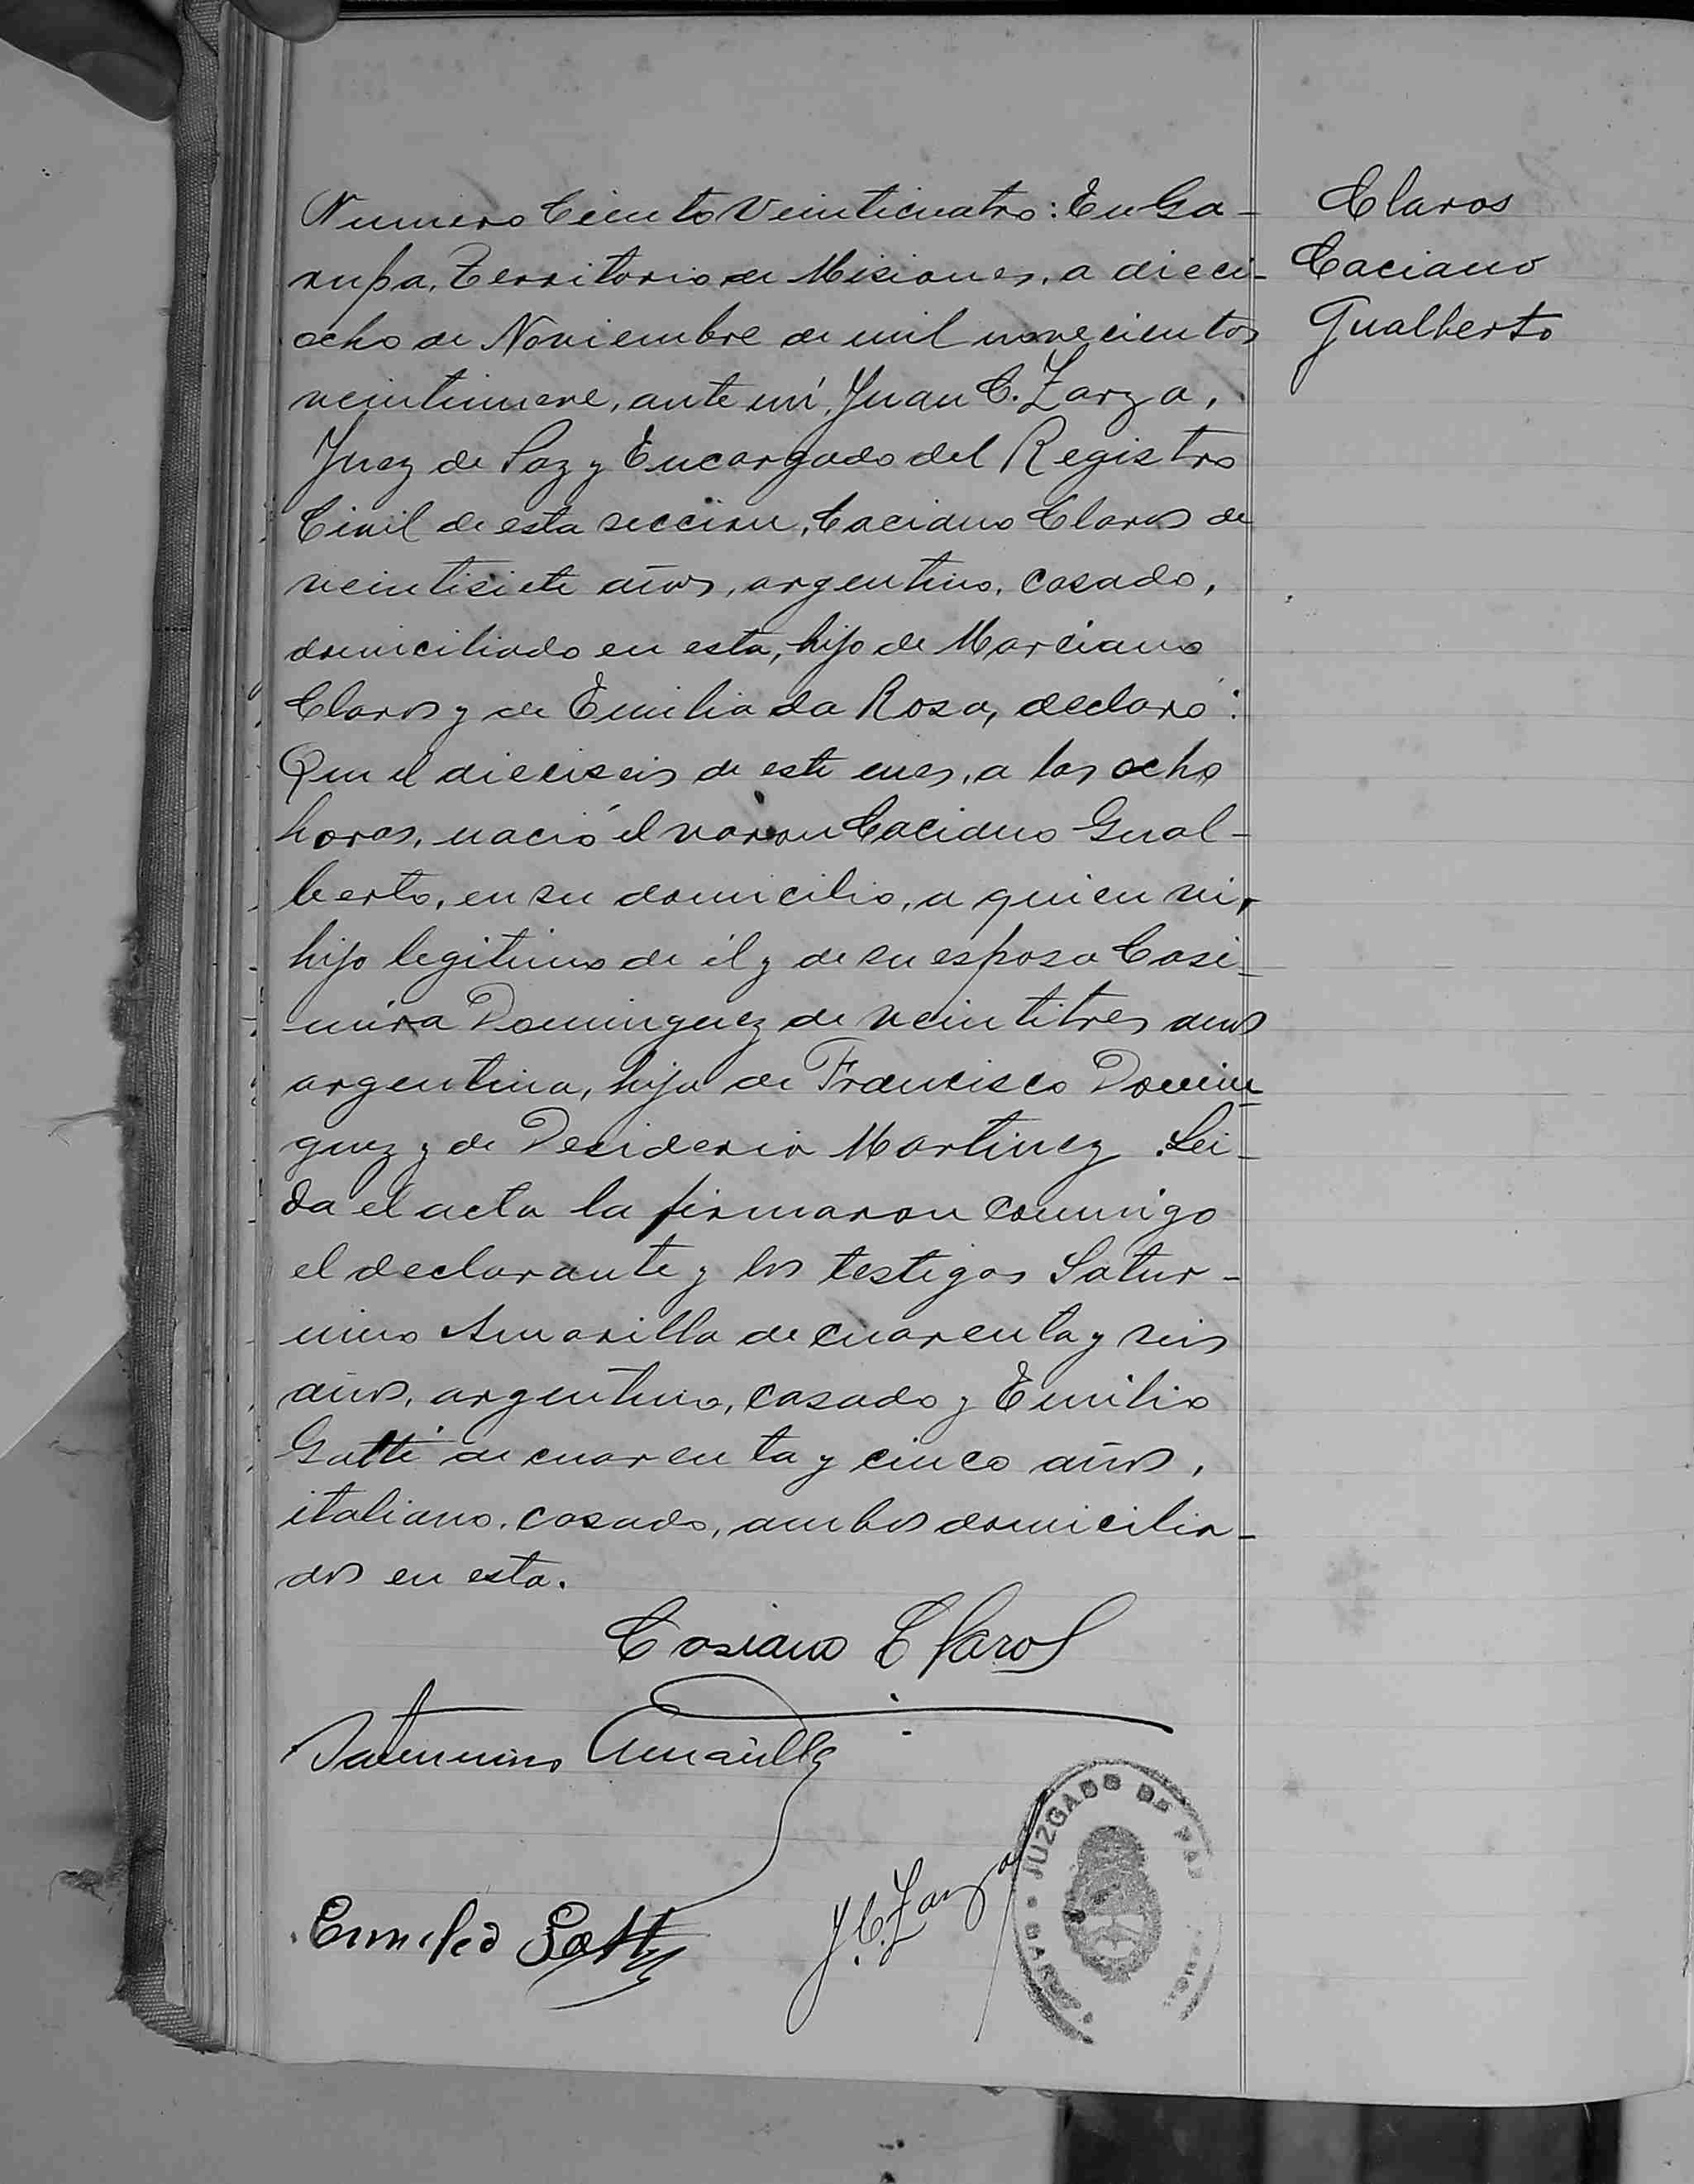 Numero Ciento Veinticuatro: En Ga-
rupa, Territorio de Misiones, a dieci-
ocho de Noviembre de mil novecientos
veintinueve, ante mí, Juan C. Zarza,
Juez de Paz y Encargado del Registro
Civil de esta seccion, Caciano Claros de
veintisiete años, argentino, casado,
domiciliado en esta, hijo de Marciano
Claros y de Emilia da Rosa, declaró:
Que el dieciseis de este mes, a las ocho
horas, nació el varon Caciano Gual-
berto, en su domicilio, a quien vi,
hijo legitimo de él y de su esposa Casi-
mira Dominguez de veintitres años
argentina, hija de Francisco Domin-
guez y de Desideria Martinez. Lei-
da el acta la firmaron conmigo
el declarante y los testigos Satur-
nino Amarilla de cuarenta y seis
años, argentino, casado y Emilio
Gatti de cuarenta y cinco años,
italiano, casado, ambos domicilia-
dos en esta.
Casiano Claros
Saturnino Amarilla
Emilio Gatti
J. C. Zarza
JUZGADO DE PAZ
Claros
Caciano
Gualberto